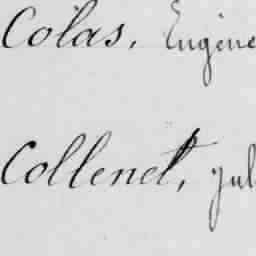 Colas, Eugène
Collenet, Jul